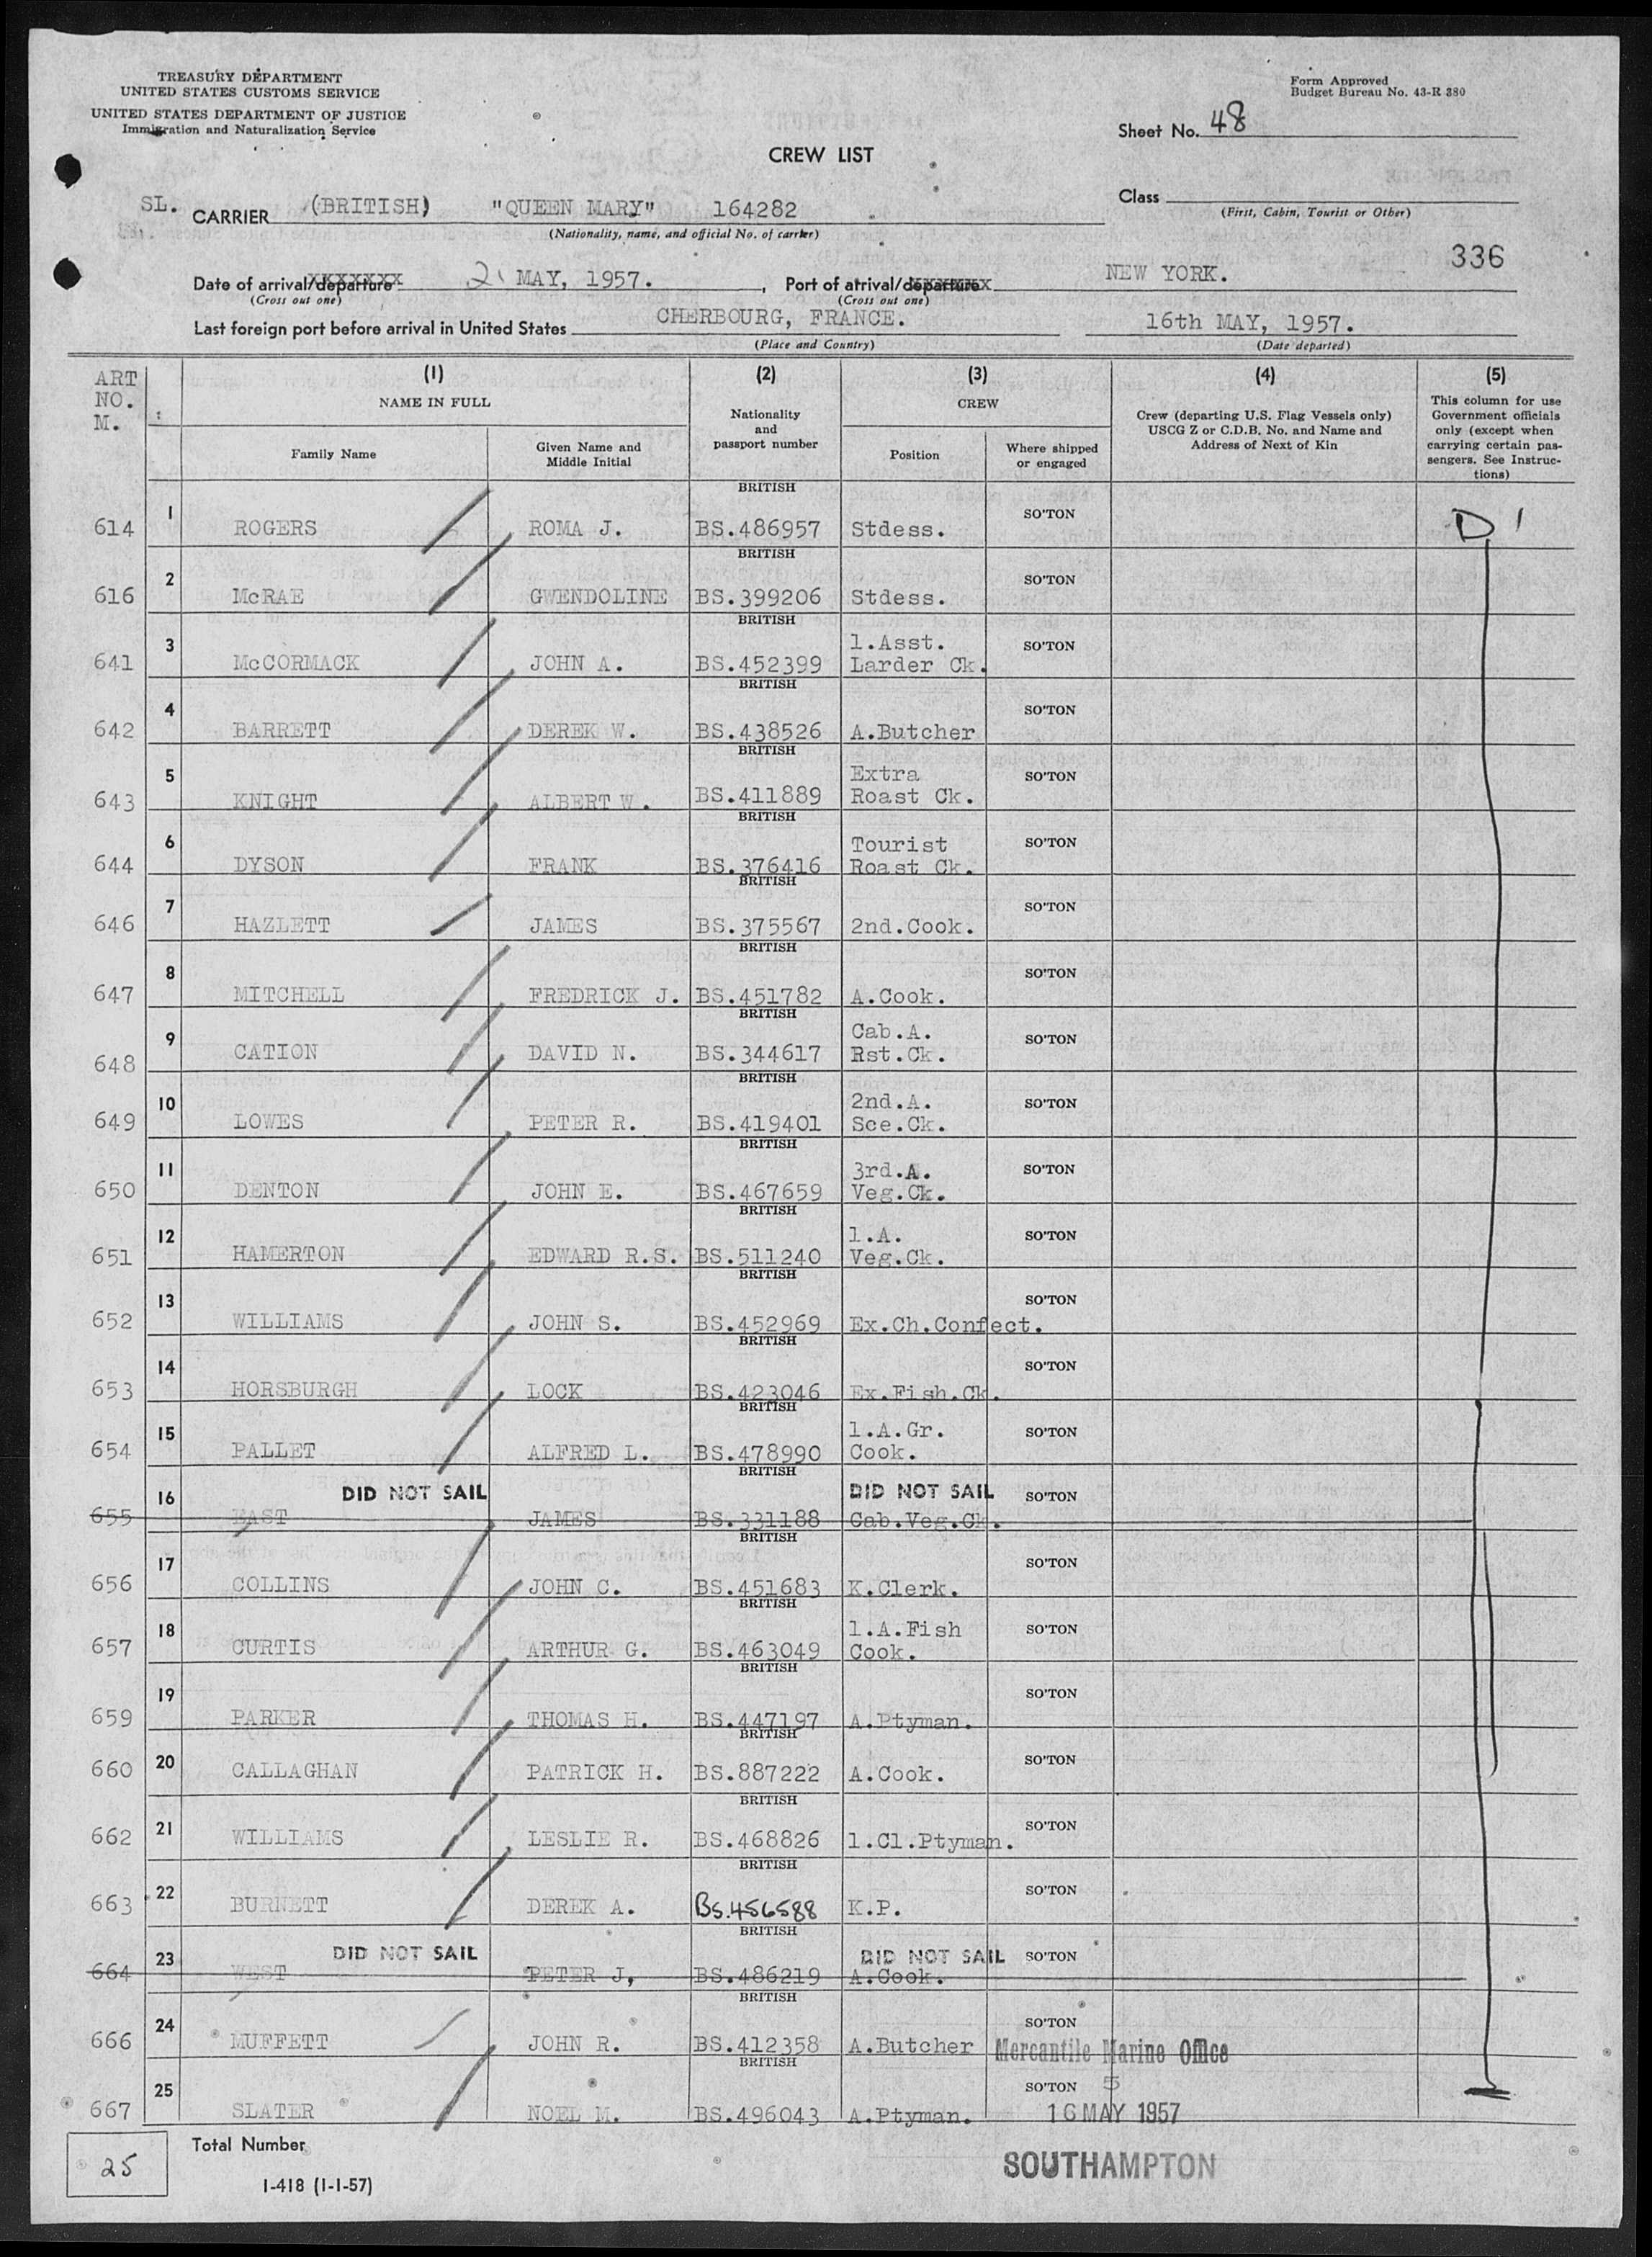 TREASURY DEPARTMENT
UNITED STATES CUSTOMS SERVICE
UNITED STATES DEPARTMENT OF JUSTICE
Immigration and Naturalization Service
Form Approved
Budget Bureau No. 43-R 380
Sheet No. 48
CREW LIST
Class
(First, Cabin, Tourist or Other)
SL. CARRIER (BRITISH) "QUEEN MARY" 164282
(Nationality, name, and official No. of carrier)
336
Date of arrival/departure 21 MAY, 1957. , Port of arrival/departure NEW YORK.
(Cross out one) (Cross out one)
Last foreign port before arrival in United States CHERBOURG, FRANCE. 16th MAY, 1957.
(Place and Country) (Date departed)
ART NO. M.
(1) (2) (3) (4) (5)
NAME IN FULL
Family Name
Given Name and Middle Initial
Nationality and passport number
CREW
Position
Where shipped or engaged
Crew (departing U.S. Flag Vessels only) USCG Z or C.D.B. No. and Name and Address of Next of Kin
This column for use Government officials only (except when carrying certain passengers. See Instructions)
614 1 ROGERS ROMA J. BRITISH BS.486957 Stdess. SO'TON D 1
616 2 McRAE GWENDOLINE BRITISH BS.399206 Stdess. SO'TON
641 3 McCORMACK JOHN A. BRITISH BS.452399 1.Asst. Larder Ck. SO'TON
642 4 BARRETT DEREK W. BRITISH BS.438526 A.Butcher SO'TON
643 5 KNIGHT ALBERT W. BRITISH BS.411889 Extra Roast Ck. SO'TON
644 6 DYSON FRANK BRITISH BS.376416 Tourist Roast Ck. SO'TON
646 7 HAZLETT JAMES BRITISH BS.375567 2nd.Cook. SO'TON
647 8 MITCHELL FREDRICK J. BRITISH BS.451782 A.Cook. SO'TON
648 9 CATION DAVID N. BRITISH BS.344617 Cab.A. Rst.Ck. SO'TON
649 10 LOWES PETER R. BRITISH BS.419401 2nd.A. Sce.Ck. SO'TON
650 11 DENTON JOHN E. BRITISH BS.467659 3rd.A. Veg.Ck. SO'TON
651 12 HAMERTON EDWARD R.S. BRITISH BS.511240 1.A. Veg.Ck. SO'TON
652 13 WILLIAMS JOHN S. BRITISH BS.452969 Ex.Ch.Confect. SO'TON
653 14 HORSBURGH LOCK BRITISH BS.423046 Ex.Fish.Ck. SO'TON
654 15 PALLET ALFRED L. BRITISH BS.478990 1.A.Gr. Cook. SO'TON
655 16 EAST DID NOT SAIL JAMES BRITISH BS.331188 DID NOT SAIL Cab.Veg.Ck. SO'TON
656 17 COLLINS JOHN C. BRITISH BS.451683 K.Clerk. SO'TON
657 18 CURTIS ARTHUR G. BRITISH BS.463049 1.A.Fish Cook. SO'TON
659 19 PARKER THOMAS H. BRITISH BS.447197 A.Ptyman. SO'TON
660 20 CALLAGHAN PATRICK H. BRITISH BS.887222 A.Cook. SO'TON
662 21 WILLIAMS LESLIE R. BRITISH BS.468826 1.Cl.Ptyman. SO'TON
663 22 BURNETT DEREK A. BRITISH BS.456588 K.P. SO'TON
664 23 WEST DID NOT SAIL PETER J, BRITISH BS.486219 DID NOT SAIL A.Cook. SO'TON
666 24 MUFFETT JOHN R. BRITISH BS.412358 A.Butcher SO'TON
Mercantile Marine Office
667 25 SLATER NOEL M. BRITISH BS.496043 A.Ptyman. SO'TON
5
16 MAY 1957
SOUTHAMPTON
25 Total Number
I-418 (1-1-57)